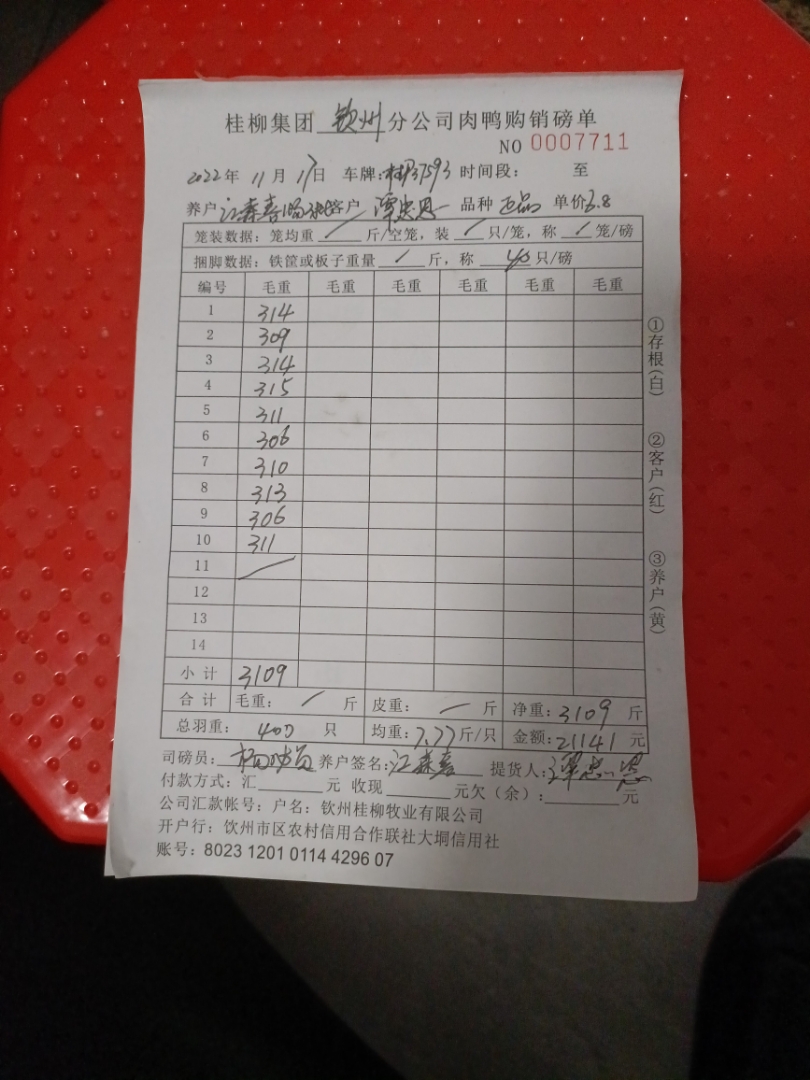 桂柳集团 钦州 分公司肉鸭购销磅单
NO 0007711
2022年 11月 17日 车牌: 37593 时间段: 至
养户 江森喜 客户 谭忠恩 品种 正品 单价 6.8
笼装数据: 笼均重 / 斤/空笼, 装 / 只/笼, 称 / 笼/磅
捆脚数据: 铁筐或板子重量 / 斤, 称 40 只/磅
编号 毛重 毛重 毛重 毛重 毛重 毛重
1 314
2 309
3 314
4 315
5 311
6 306
7 310
8 313
9 306
10 311
11 /
12
13
14
小计 3109
合计 毛重: / 斤 皮重: / 斤 净重: 3109 斤
总羽重: 400 只 均重: 7.77 斤/只 金额: 21141 元
司磅员: 养户签名: 江森喜 提货人: 谭忠恩
付款方式: 汇 元 收现 元欠(余): 元
公司汇款帐号: 户名: 钦州桂柳牧业有限公司
开户行: 钦州市区农村信用合作联社大垌信用社
账号: 8023 1201 0114 4296 07
①存根(白)
②客户(红)
③养户(黄)